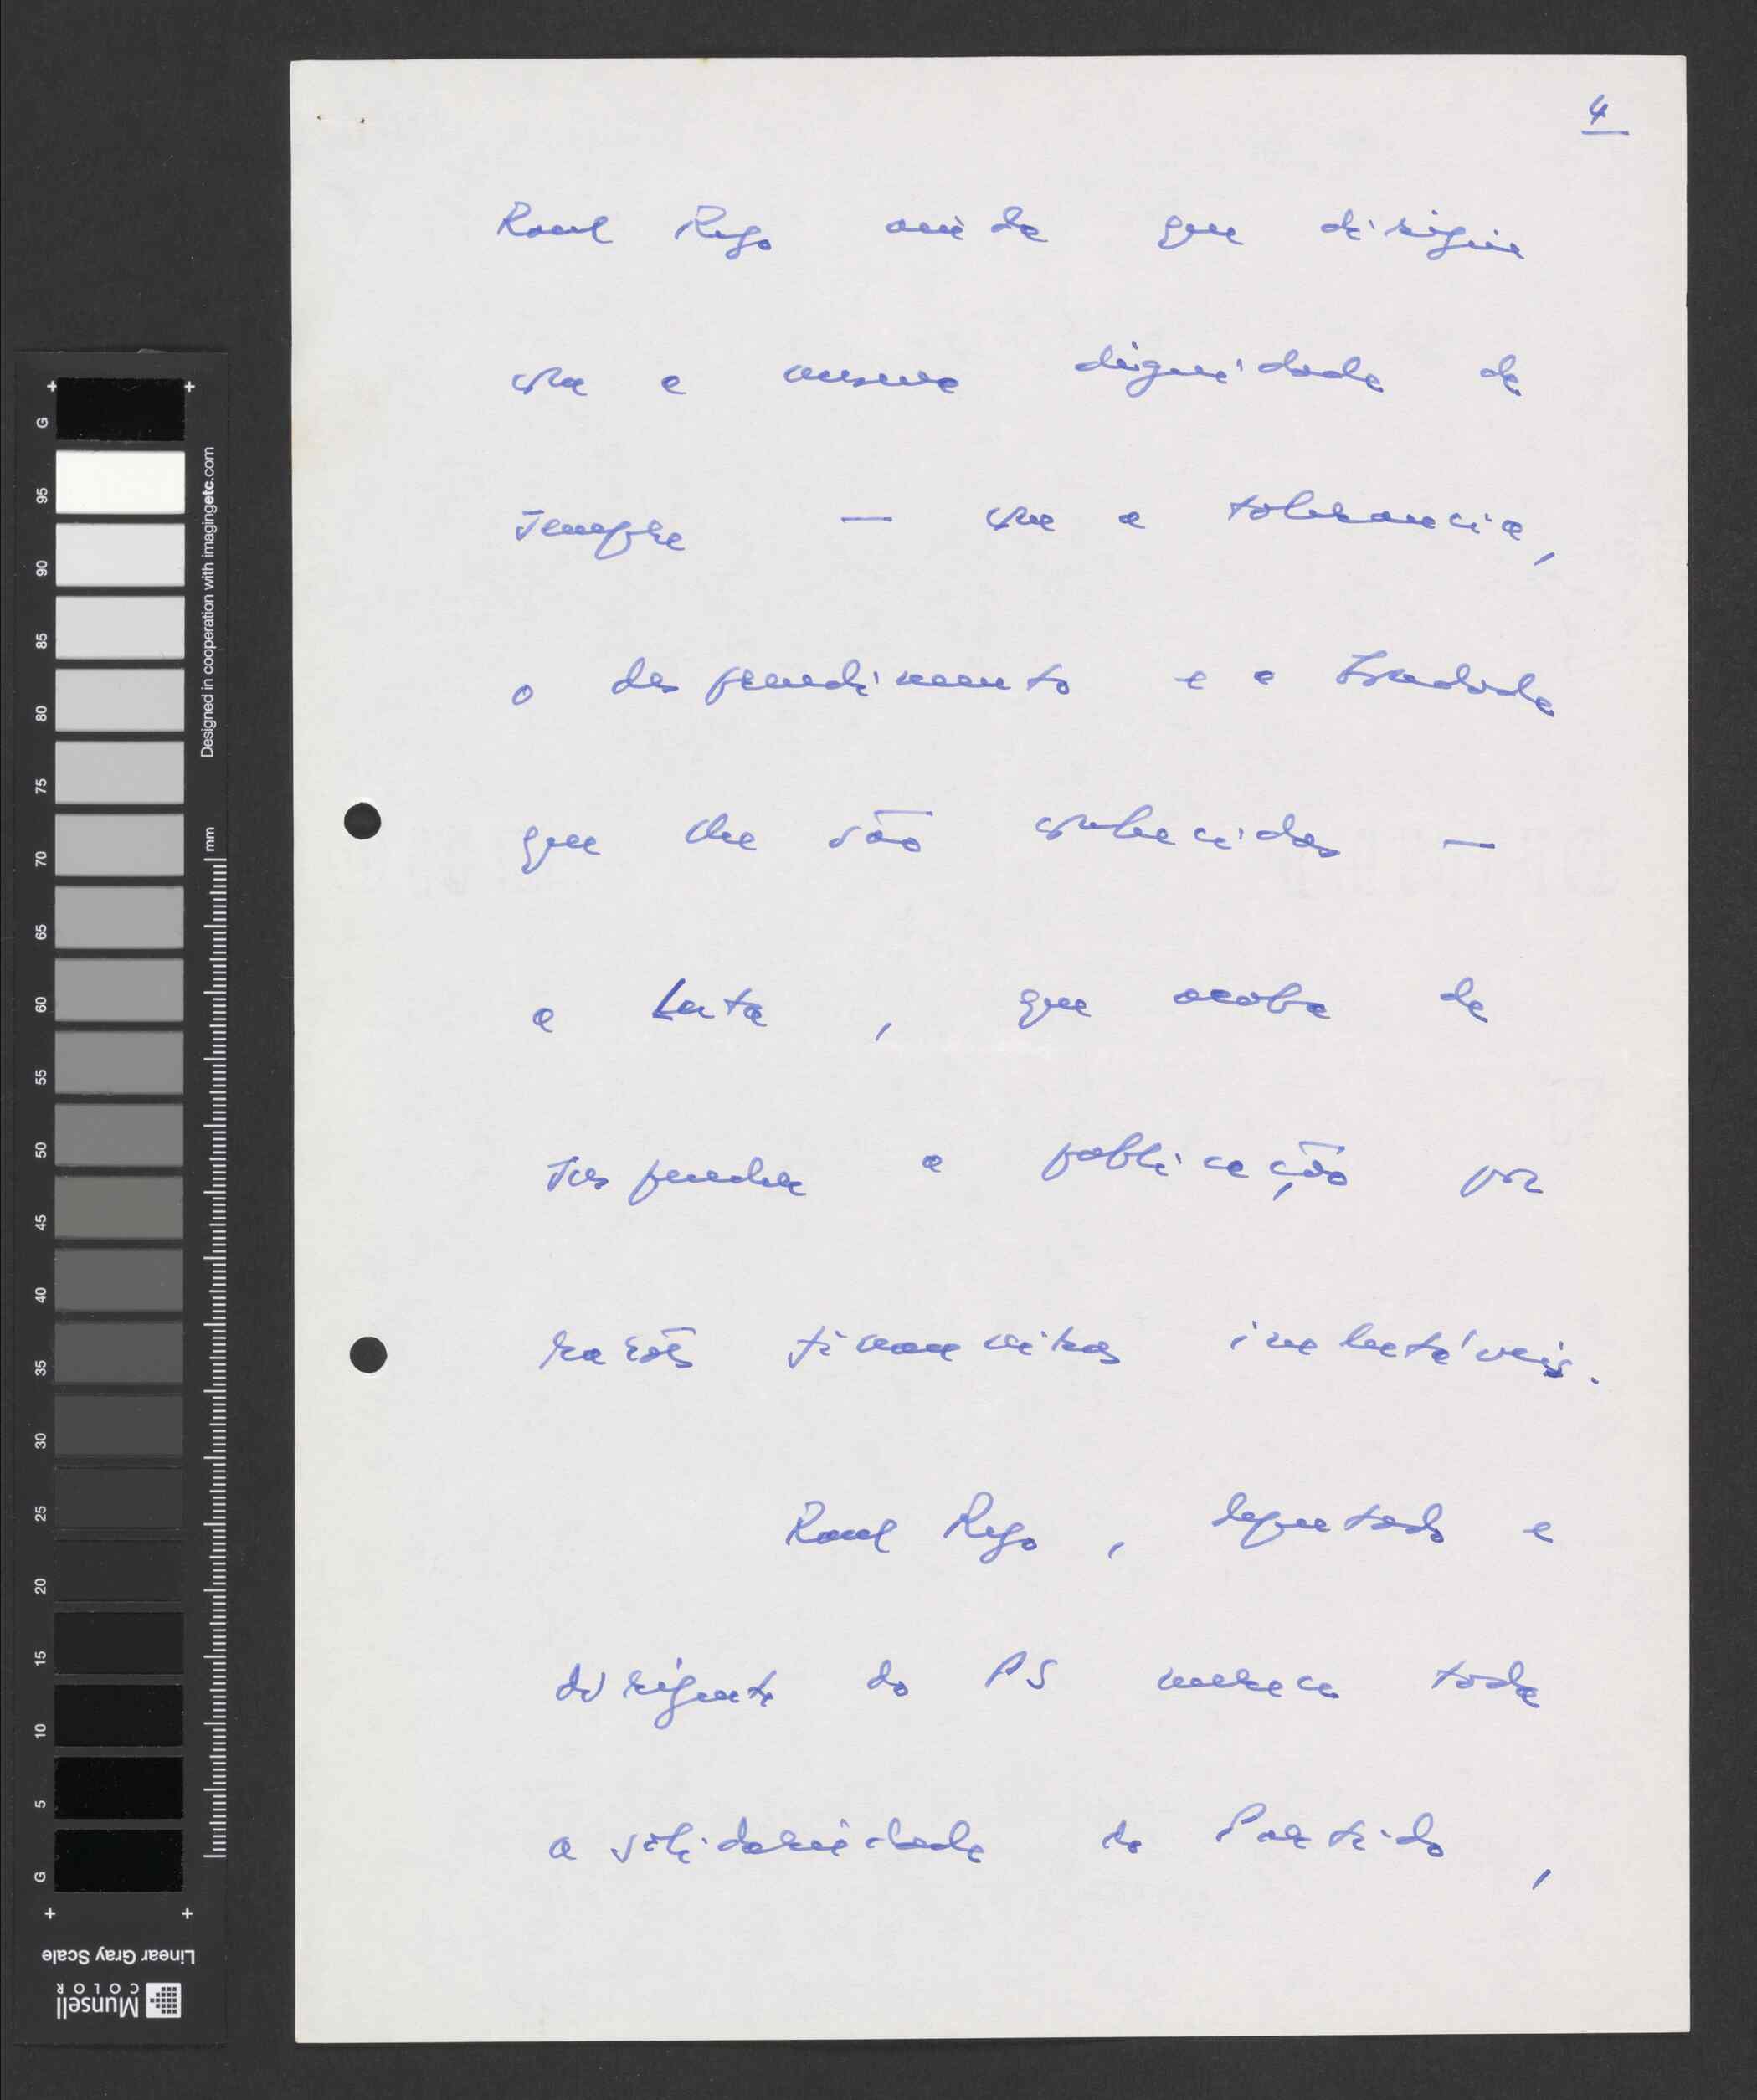 4
Raul Rego ainda que dirigia
com a mesma dignidade de
sempre — com a tolerancia,
o desprendimento e a bondade
que lhe são conhecidas —
a Luta, que acaba de
suspender a publicação por
razões financeiras inelutáveis.
Raul Rego, deputado e
dirigente do PS merece toda
a solidariedade do Partido,
G
95
90
85
80
75
70
65
60
55
50
45
40
35
30
25
20
15
10
5
G
Designed in cooperation with imagingetc.com
mm
Linear Gray Scale
Munsell
COLOR